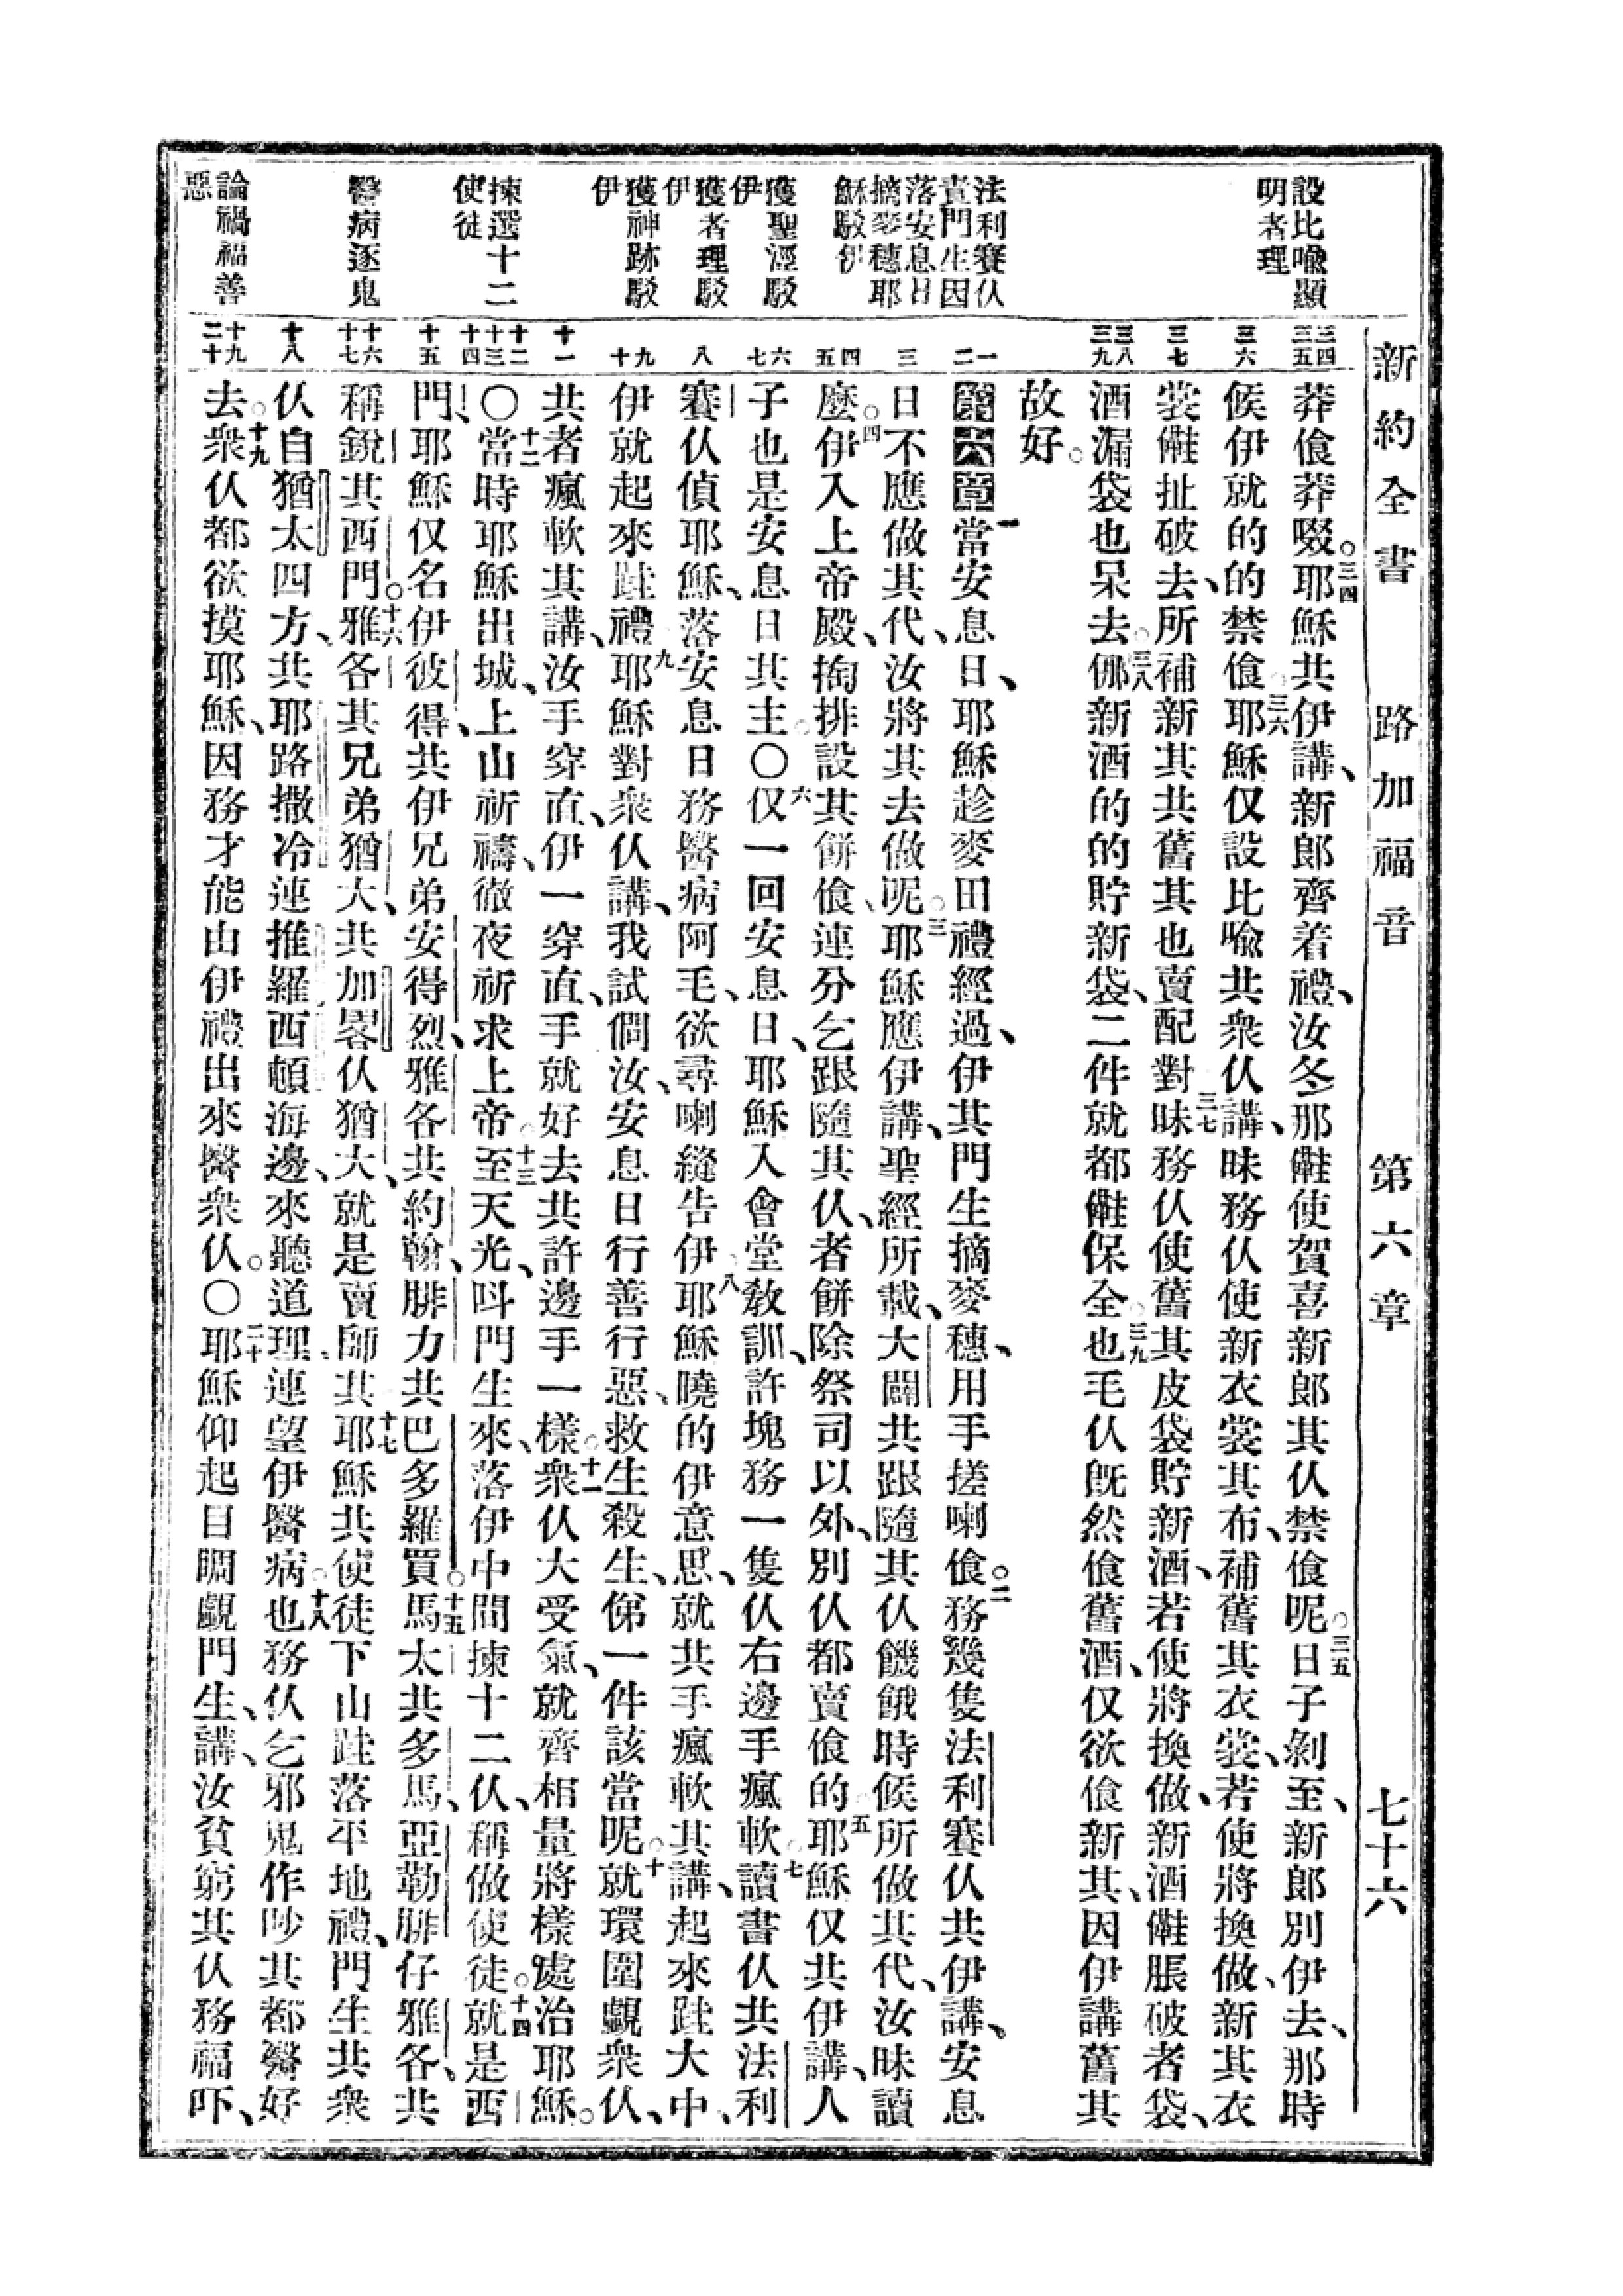 新約全書　路加福音　第六章　七十六
設比喩顯
明者理
法利賽仈
責門生因
落安息日
摘麥穗耶
穌駁伊
獲聖涇駁
伊
獲者理駁
伊
獲神跡駁
伊
揀選十二
使徒
醫病逐鬼
論禍福善
惡
三四 三五 三六 三七 三八 三九 一 二 三 四 五 六 七 八 九 十 十一 十二 十三 十四 十五 十六 十七 十八 十九 二十
莽飡莽啜。三四耶穌共伊講、新郞齊着禮、汝冬那𣍐使賀喜新郞其仈禁飡呢。三五日子剝至、新郞別伊去、那時
候伊就的的禁飡。三六耶穌仅設比喩共衆仈講、昧務仈使新衣裳其布、補舊其衣裳、若使將換做、新其衣
裳𣍐扯破去、所補新其共舊其也賣配對。三七昧務仈使舊其皮袋貯新酒、若使將換做、新酒𣍐脹破者袋、
酒漏袋也呆去。三八𠲥新酒的的貯新袋、二件就都𣍐保全。三九也毛仈旣然飡舊酒、仅欲飡新其、因伊講舊其
故好。
第六章一當安息日、耶穌趁麥田禮經過、伊其門生摘麥穗、用手搓喇飡。二務幾隻法利賽仈共伊講、安息
日不應做其代、汝將其去做呢。三耶穌應伊講、聖經所載、大闢共跟隨其仈饑餓時候所做其代、汝昧讀
麼。四伊入上帝殿、掏排設其餅飡、連分乞跟隨其仈、者餅除祭司以外、別仈都賣飡的。五耶穌仅共伊講、人
子也是安息日其主。〇六仅一回安息日、耶穌入會堂敎訓、許塊務一隻仈右邊手瘋軟。七讀書仈共法利
賽仈偵耶穌、落安息日務醫病阿毛、欲尋喇縫告伊。八耶穌曉的伊意思、就共手瘋軟其講、起來跬大中、
伊就起來跬禮。九耶穌對衆仈講、我試問汝、安息日行善行惡、救生殺生、俤一件該當呢。十就環圍覷衆仈、
共者瘋軟其講、汝手穿直、伊一穿直、手就好去共許邊手一樣。十一衆仈大受氣、就齊相量將樣處治耶穌。
〇十二當時耶穌出城、上山祈禱、徹夜祈求上帝。十三至天光、呌門生來、落伊中間揀十二仈、稱做使徒。十四就是西
門、耶穌仅名伊彼得、共伊兄弟安得烈、雅各共約翰、腓力共巴多羅買。十五馬太共多馬、亞勒腓仔雅各、共
稱銳其西門。十六雅各其兄弟猶大、共加畧仈猶大、就是賣師其。十七耶穌共使徒下山跬落平地禮、門生共衆
仈自猶太四方、共耶路撒冷連推羅西頓海邊、來聽道理、連望伊醫病。十八也務仈乞邪鬼作吵其都醫好
去。十九衆仈都欲摸耶穌、因務才能由伊禮出來醫衆仈。〇二十耶穌仰起目睭覷門生、講、汝貧窮其仈務福吓、